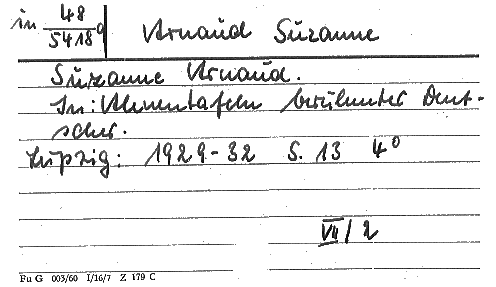 in 48/5418a Arnaud Suzanne
Suzanne Arnaud.
In: Ahnentafeln berühmter Deut-
scher.
Leipzig: 1929-32 S. 13 4°
VII/2
Fu G 003/60 I/16/7 Z 179 C